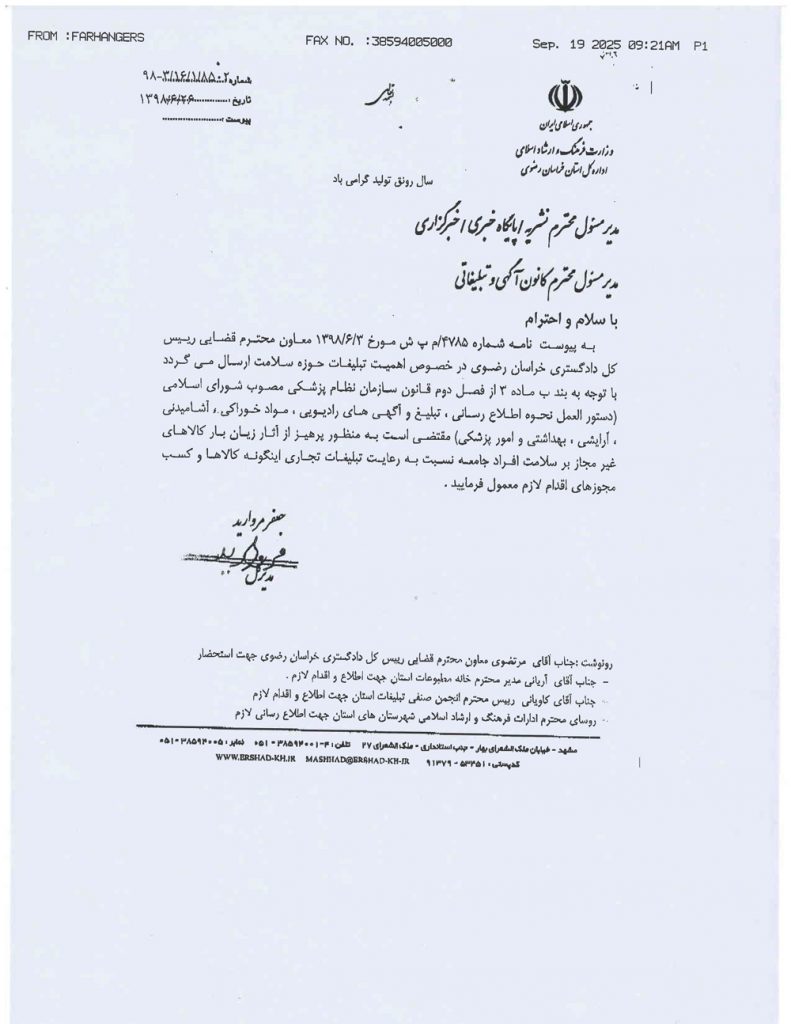 FROM :FARHANGERS
FAX NO. :38594005000
Sep. 19 2025 09:21AM P1
شماره: ۹۸-۳/۱۶/۱/۸۵۰۲
تاریخ: ۱۳۹۸/۶/۲۶
پیوست:
جمهوری اسلامی ایران
وزارت فرهنگ و ارشاد اسلامی
اداره کل استان خراسان رضوی
سال رونق تولید گرامی باد
مدیر مسئول محترم نشریه / پایگاه خبری / خبرگزاری
مدیر مسئول محترم کانون آگهی و تبلیغاتی
با سلام و احترام
به پیوست نامه شماره ۴۷۸۵/م پ ش مورخ ۱۳۹۸/۶/۳ معاون محترم قضایی رییس
کل دادگستری خراسان رضوی در خصوص اهمیت تبلیغات حوزه سلامت ارسال می گردد
با توجه به بند ب ماده ۳ از فصل دوم قانون سازمان نظام پزشکی مصوب شورای اسلامی
(دستور العمل نحوه اطلاع رسانی ، تبلیغ و آگهی های رادیویی ، مواد خوراکی ، آشامیدنی
، آرایشی ، بهداشتی و امور پزشکی) مقتضی است به منظور پرهیز از آثار زیان بار کالاهای
غیر مجاز بر سلامت افراد جامعه نسبت به رعایت تبلیغات تجاری اینگونه کالاها و کسب
مجوزهای اقدام لازم معمول فرمایید .
جعفر مروارید
مدیرکل
رونوشت :جناب آقای مرتضوی معاون محترم قضایی رییس کل دادگستری خراسان رضوی جهت استحضار
– جناب آقای آریانی مدیر محترم خانه مطبوعات استان جهت اطلاع و اقدام لازم .
جناب آقای کاویانی رییس محترم انجمن صنفی تبلیغات استان جهت اطلاع و اقدام لازم
روسای محترم ادارات فرهنگ و ارشاد اسلامی شهرستان های استان جهت اطلاع رسانی لازم
مشهد - خیابان ملک الشعرای بهار - جنب استانداری - ملک الشعرای ۲۷ تلفن : ۴-۳۸۵۹۴۰۰۱ - ۰۵۱ نمابر : ۳۸۵۹۴۰۰۵ - ۰۵۱
کدپستی : ۵۳۴۵۱ - ۹۱۳۷۹ MASHHAD@ERSHAD-KH.IR WWW.ERSHAD-KH.IR